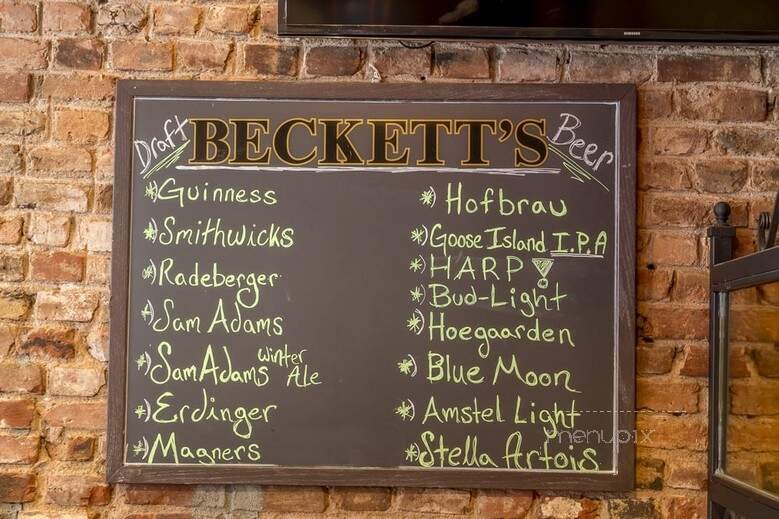 SAMSUNG
Draft BECKETT'S Beer
*) Guinness
*) Smithwicks
*) Radeberger
*) Sam Adams
*) Sam Adams Winter Ale
*) Erdinger
*) Magners
*) Hofbrau
*) Goose Island I.P.A
*) HARP
*) Bud-Light
*) Hoegaarden
*) Blue Moon
*) Amstel Light
*) Stella Artois
menupix